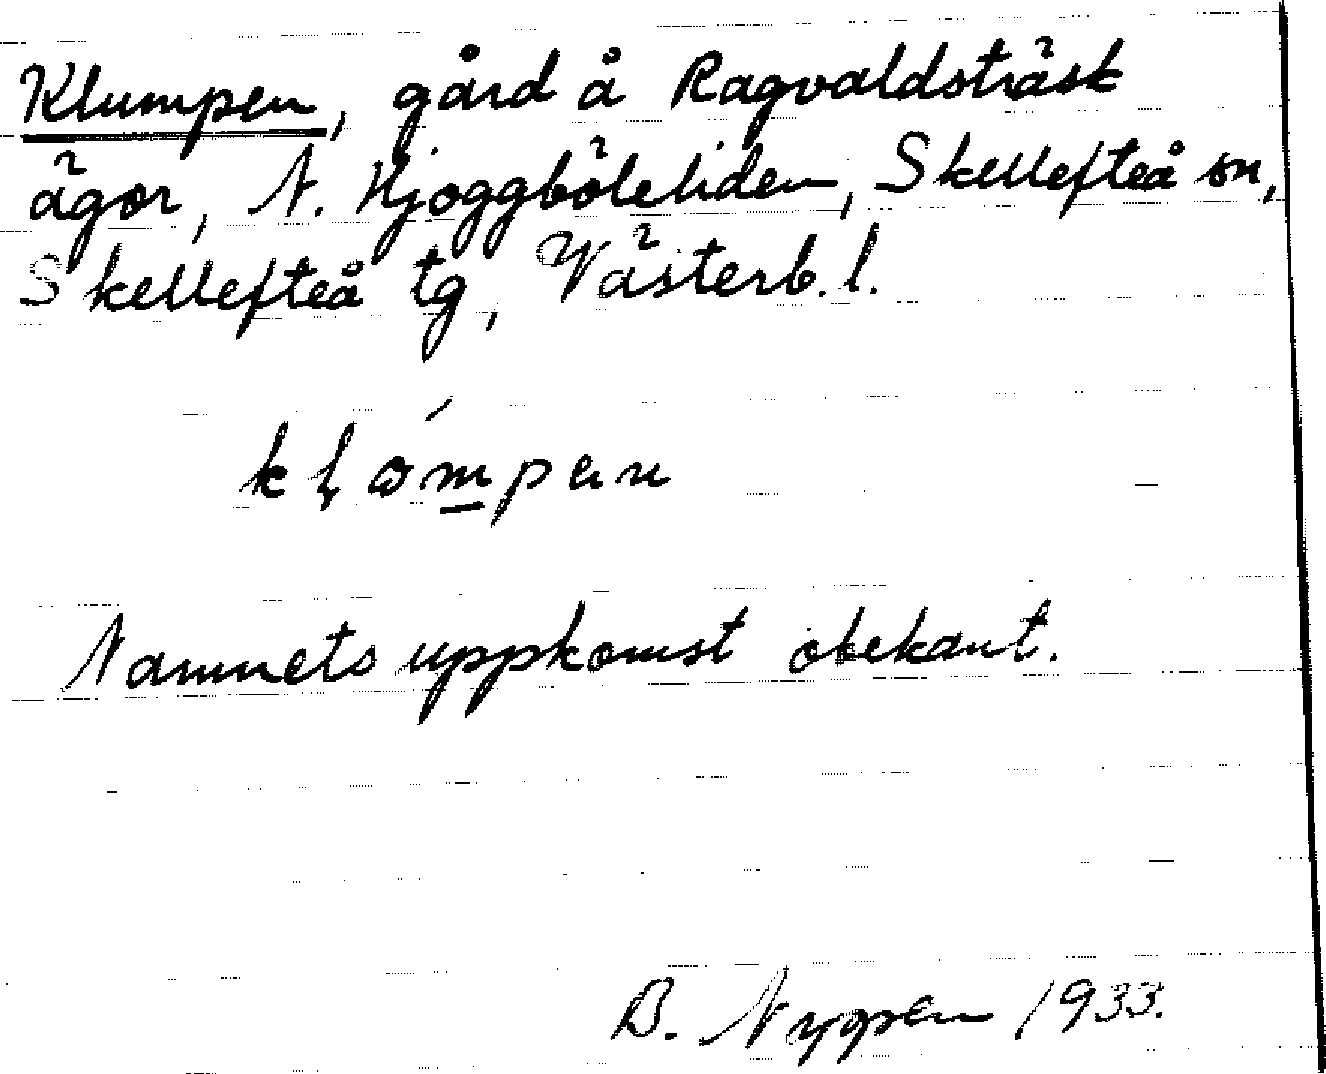 Klumpen, gård å Ragvaldsträsk
ägor, N. Hjoggböleliden, Skellefteå sn,
Skellefteå tg, Västerb. l.
Namnets uppkomst obekant.
B. Nygren 1933.